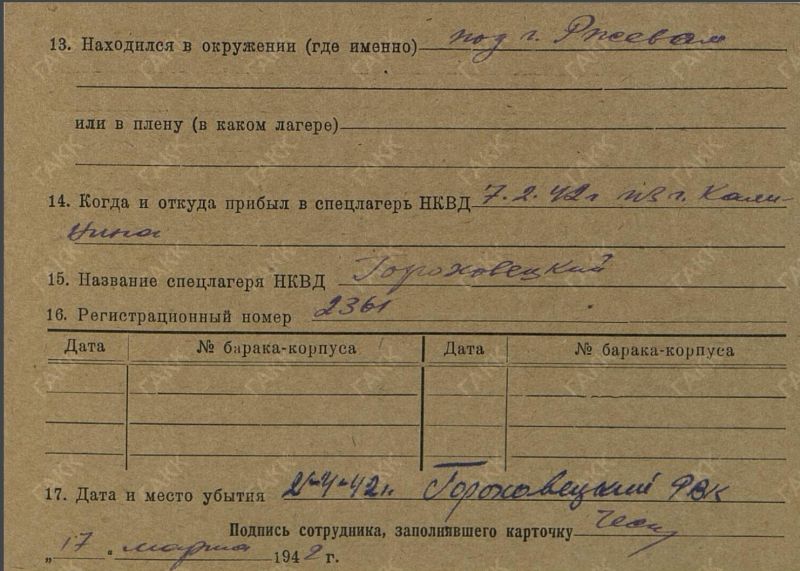 13. Находился в окружении (где именно) под г. Ржевам
или в плену (в каком лагере)
14. Когда и откуда прибыл в спецлагерь НКВД 7.2.42 г из г. Кали-
нина
15. Название спецлагеря НКВД Гороховецкий
16. Регистрационный номер 2361
Дата № барака-корпуса Дата № барака-корпуса
17. Дата и место убытия 2-4-42 г. Гороховецкий РВК
Подпись сотрудника, заполнявшего карточку
„17 “ марта 1942 г.
ГАКК